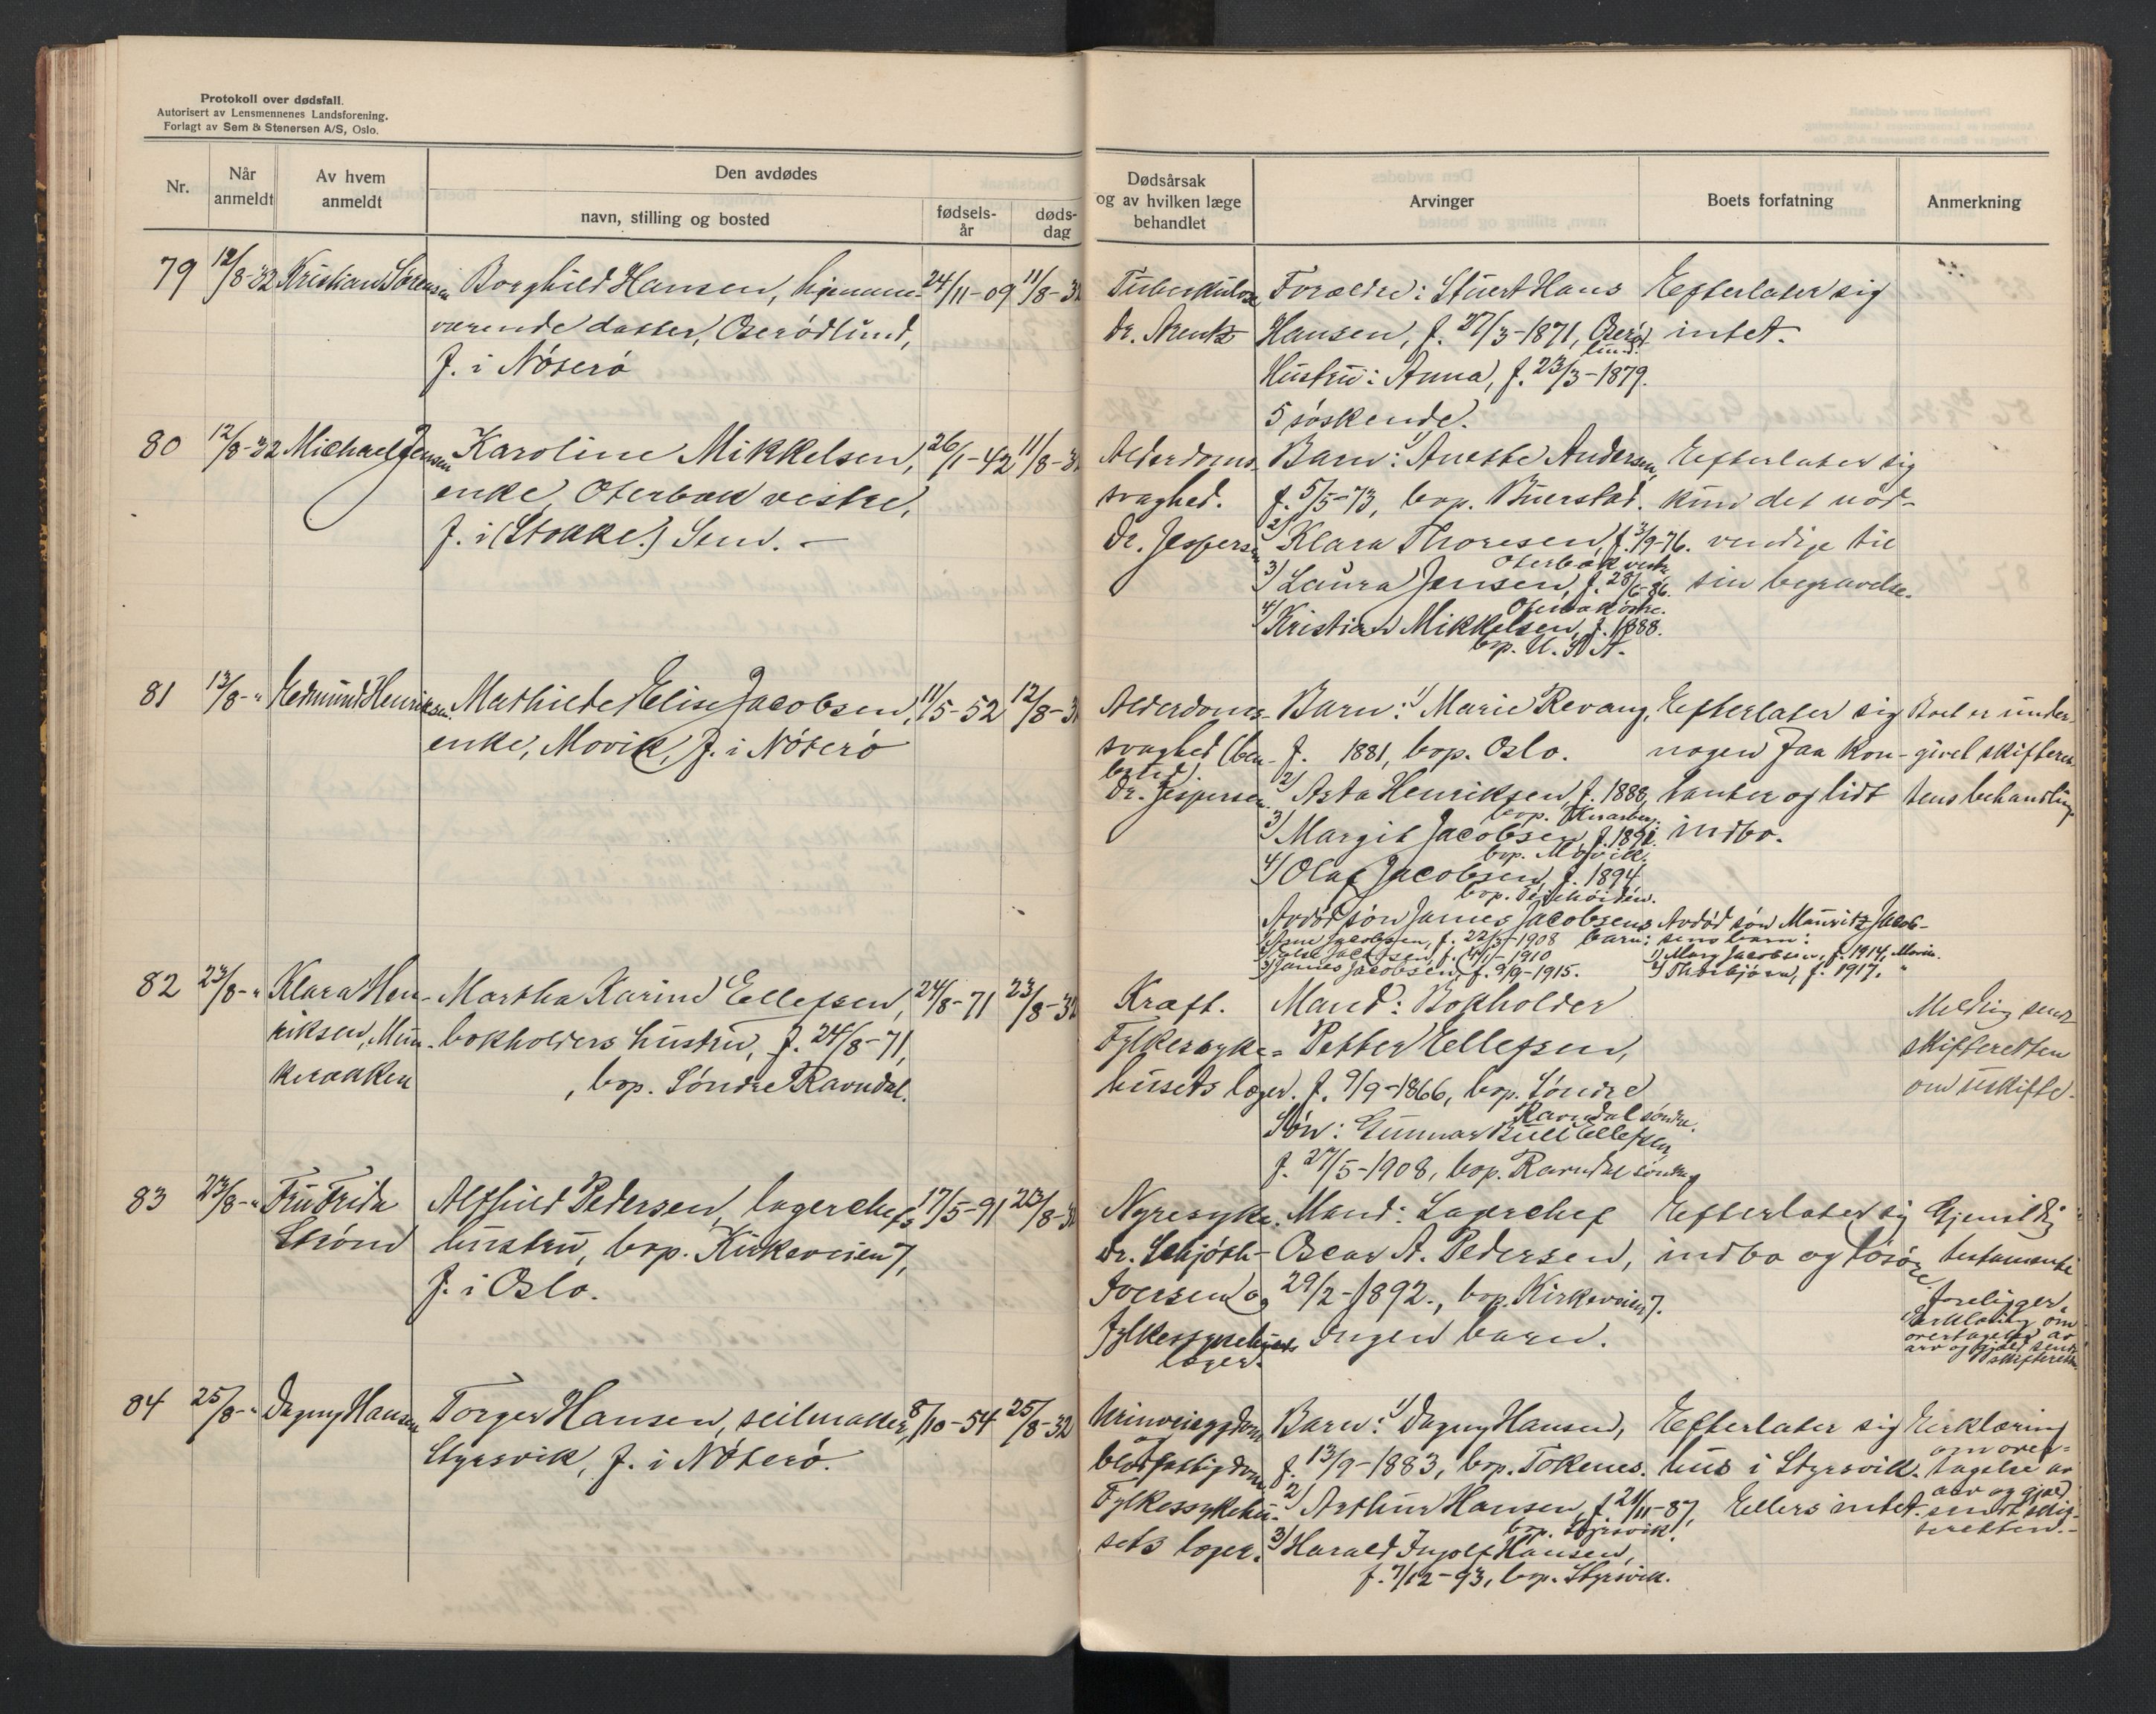 Protokoll over dødsfall.
Autorisert av Lensmennenes Landsforening.
Forlagt av Sem & Stenersen A/S, Oslo.
Nr.
Når anmeldt
Av hvem anmeldt
Den avdødes
navn, stilling og bosted
fødsels-år
døds-dag
Dødsårsak og av hvilken læge behandlet
Arvinger
Boets forfatning
Anmerkning
79 12/8-32 Kristian Sørensen Borghild Hansen, hjemme- 24/11-09 11/8-32
værende datter, Oserødlund,
f. i Nøterø
Tuberkulose
dr. Arentz
Forældre: Stuert Hans
Hansen, f. 27/3-1871, Oserød
lund.
Hustru: Anna, f. 23/3-1879.
5 søskende.
Efterlater sig
intet.
80 12/8-32 Michael Jensen Karoline Mikkelsen, 26/1-42 11/8-32
enke, Oterbæk vestre,
f. i (Stokke.) Sem. –
Alderdoms
svaghed.
Dr. Jespersen
Barn: 1) Anette Andersen,
f. 5/5-73, bop. Buerstad.
2) Klara Thoresen, f. 3/9-76.
Oterbæk vestre
3) Laura Jensen, f. 28/6-86.
Oterbæk østre.
4) Kristian Mikkelsen, f. 1888.
bop. U.S.A.
Efterlater sig
kun det nød-
vendige til
sin begravelse.
81 13/8-" Edmund Henriksen. Mathilde Elise Jacobsen, 11/5-52 12/8-32
enke, Movik, f. i Nøterø
Alderdoms-
svaghed (ben-
brud).
Dr. Jespersen.
Barn: 1) Marie Revang,
f. 1881, bop. Oslo.
2) Asta Henriksen, f. 1888,
3) Margit Jacobsen, f. 1891.
bop. Movik.
4) Olaf Jacobsen, f. 1894
Avdød søn James Jacobsens
barn:
1) Arne Jacobsen, f. 22/3-1908
2) Else Jacobsen, f. 4/1-1910
3) James Jacobsen, f. 9/9-1915.
Efterlater sig
nogen faa kon-
tanter og lidt
indbo.
Avdød søn Mauritz Jacob-
sens barn:
1) Mary Jacobsen, f. 1914, Movik.
2) Thorbjørn, f. 1917. "
Boet er under-
givet skifteret-
tens behandling
82 23/8-" Klara Hen- Martha Karine Ellefsen, 24/8-71 23/8-32
riksen, Mun- bokholders hustru, f. 24/8-71,
kerækken , bop. Søndre Ravndal.
Kræft.
Fylkessyke-
husets læger.
Mand: Bokholder
Petter Ellefsen,
f. 9/9-1866, bop. Søndre
Ravndal søndre.
Søn: Gunnar Bull Ellefsen
f. 27/5-1908, bop. Ravndal søndre
Melding sendt
skifteretten
om uskifte.
83 23/8-" Fru Frida Alfhild Pedersen, lagerchefs 17/5-91 23/8-32
Strönd hustru, bop. Kirkeveien 7,
f. i Oslo.
Nyresyke.
Dr. Schjøth-
Iversen og
fylkessykehusets
læger.
Mand: Lagerchef
Oscar A. Pedersen,
29/2-1892., bop. Kirkeveien 7.
Ingen barn.
Efterlater sig
indbo og løsøre
Gjensidig
testamente
foreligger.
Erklæring om
overtagelse av
arv og gjæld sendt
skifteretten.
84 25/8-" Dagny Hansen Torger Hansen, seilmaker, 8/10-54 25/8-32
Styrsvik, f. i Nøterø.
Urinveissygdom
og
blodfattigdom
Fylkessykehu-
sets læger.
Barn: 1) Dagny Hansen,
f. 13/9-1883, bop. Tokenes.
2) Arthur Hansen, f. 21/11-87,
bop. Styrsvik.
3) Harald Ingolf Hansen,
f. 7/12-93, bop. Styrsvik.
Efterlater sig
hus i Styrsvik.
Ellers intet.
Erklæring
om over-
tagelse av
arv og gjæld
sendt skif-
teretten.-